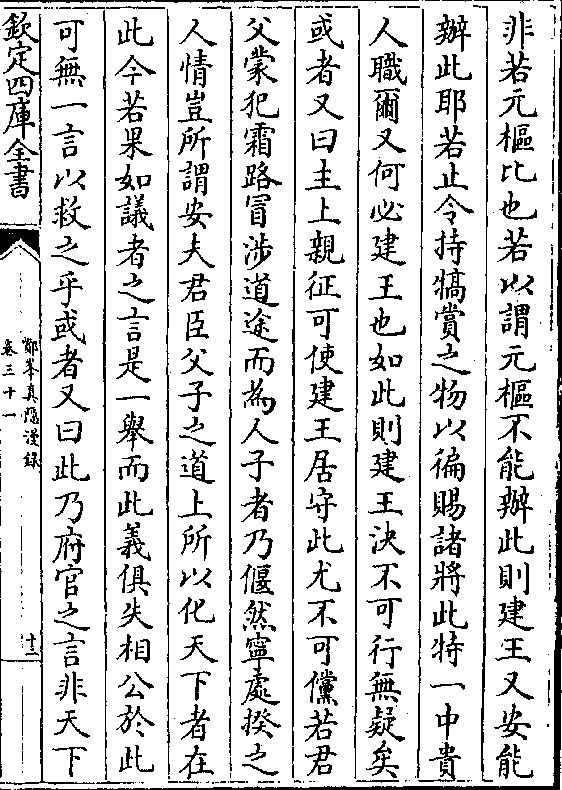 非若元樞比也若以謂元樞不能辦此則建王又安能
辦此耶若止令持犒賞之物以徧賜諸將此特一中貴
人職爾又何必建王也如此則建王決不可行無疑矣
或者又曰主上親征可使建王居守此尤不可儻若君
父蒙犯霜路冒涉道途而為人子者乃偃然寧處揆之
人情豈所謂安夫君臣父子之道上所以化天下者在
此今若果如議者之言是一舉而此義俱失相公於此
可無一言以救之乎或者又曰此乃府官之言非天下
欽定四庫全書
鄮峯真隱漫録
卷三十一
十三